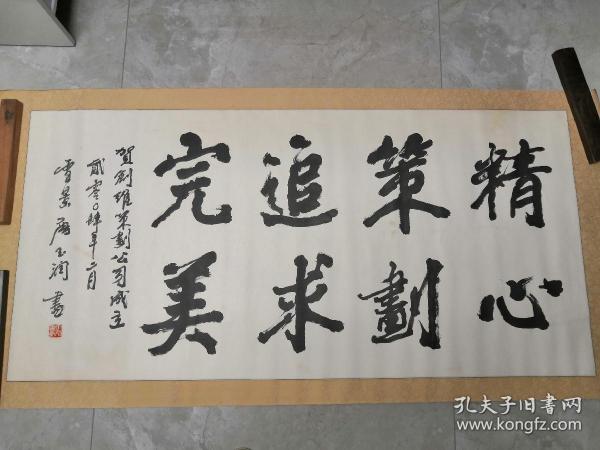 精心
策劃
追求
完美
賀創雄策劃公司成立
貳零〇肆年二月
雪景
玉润書
孔夫子旧书网
www.kongfz.com